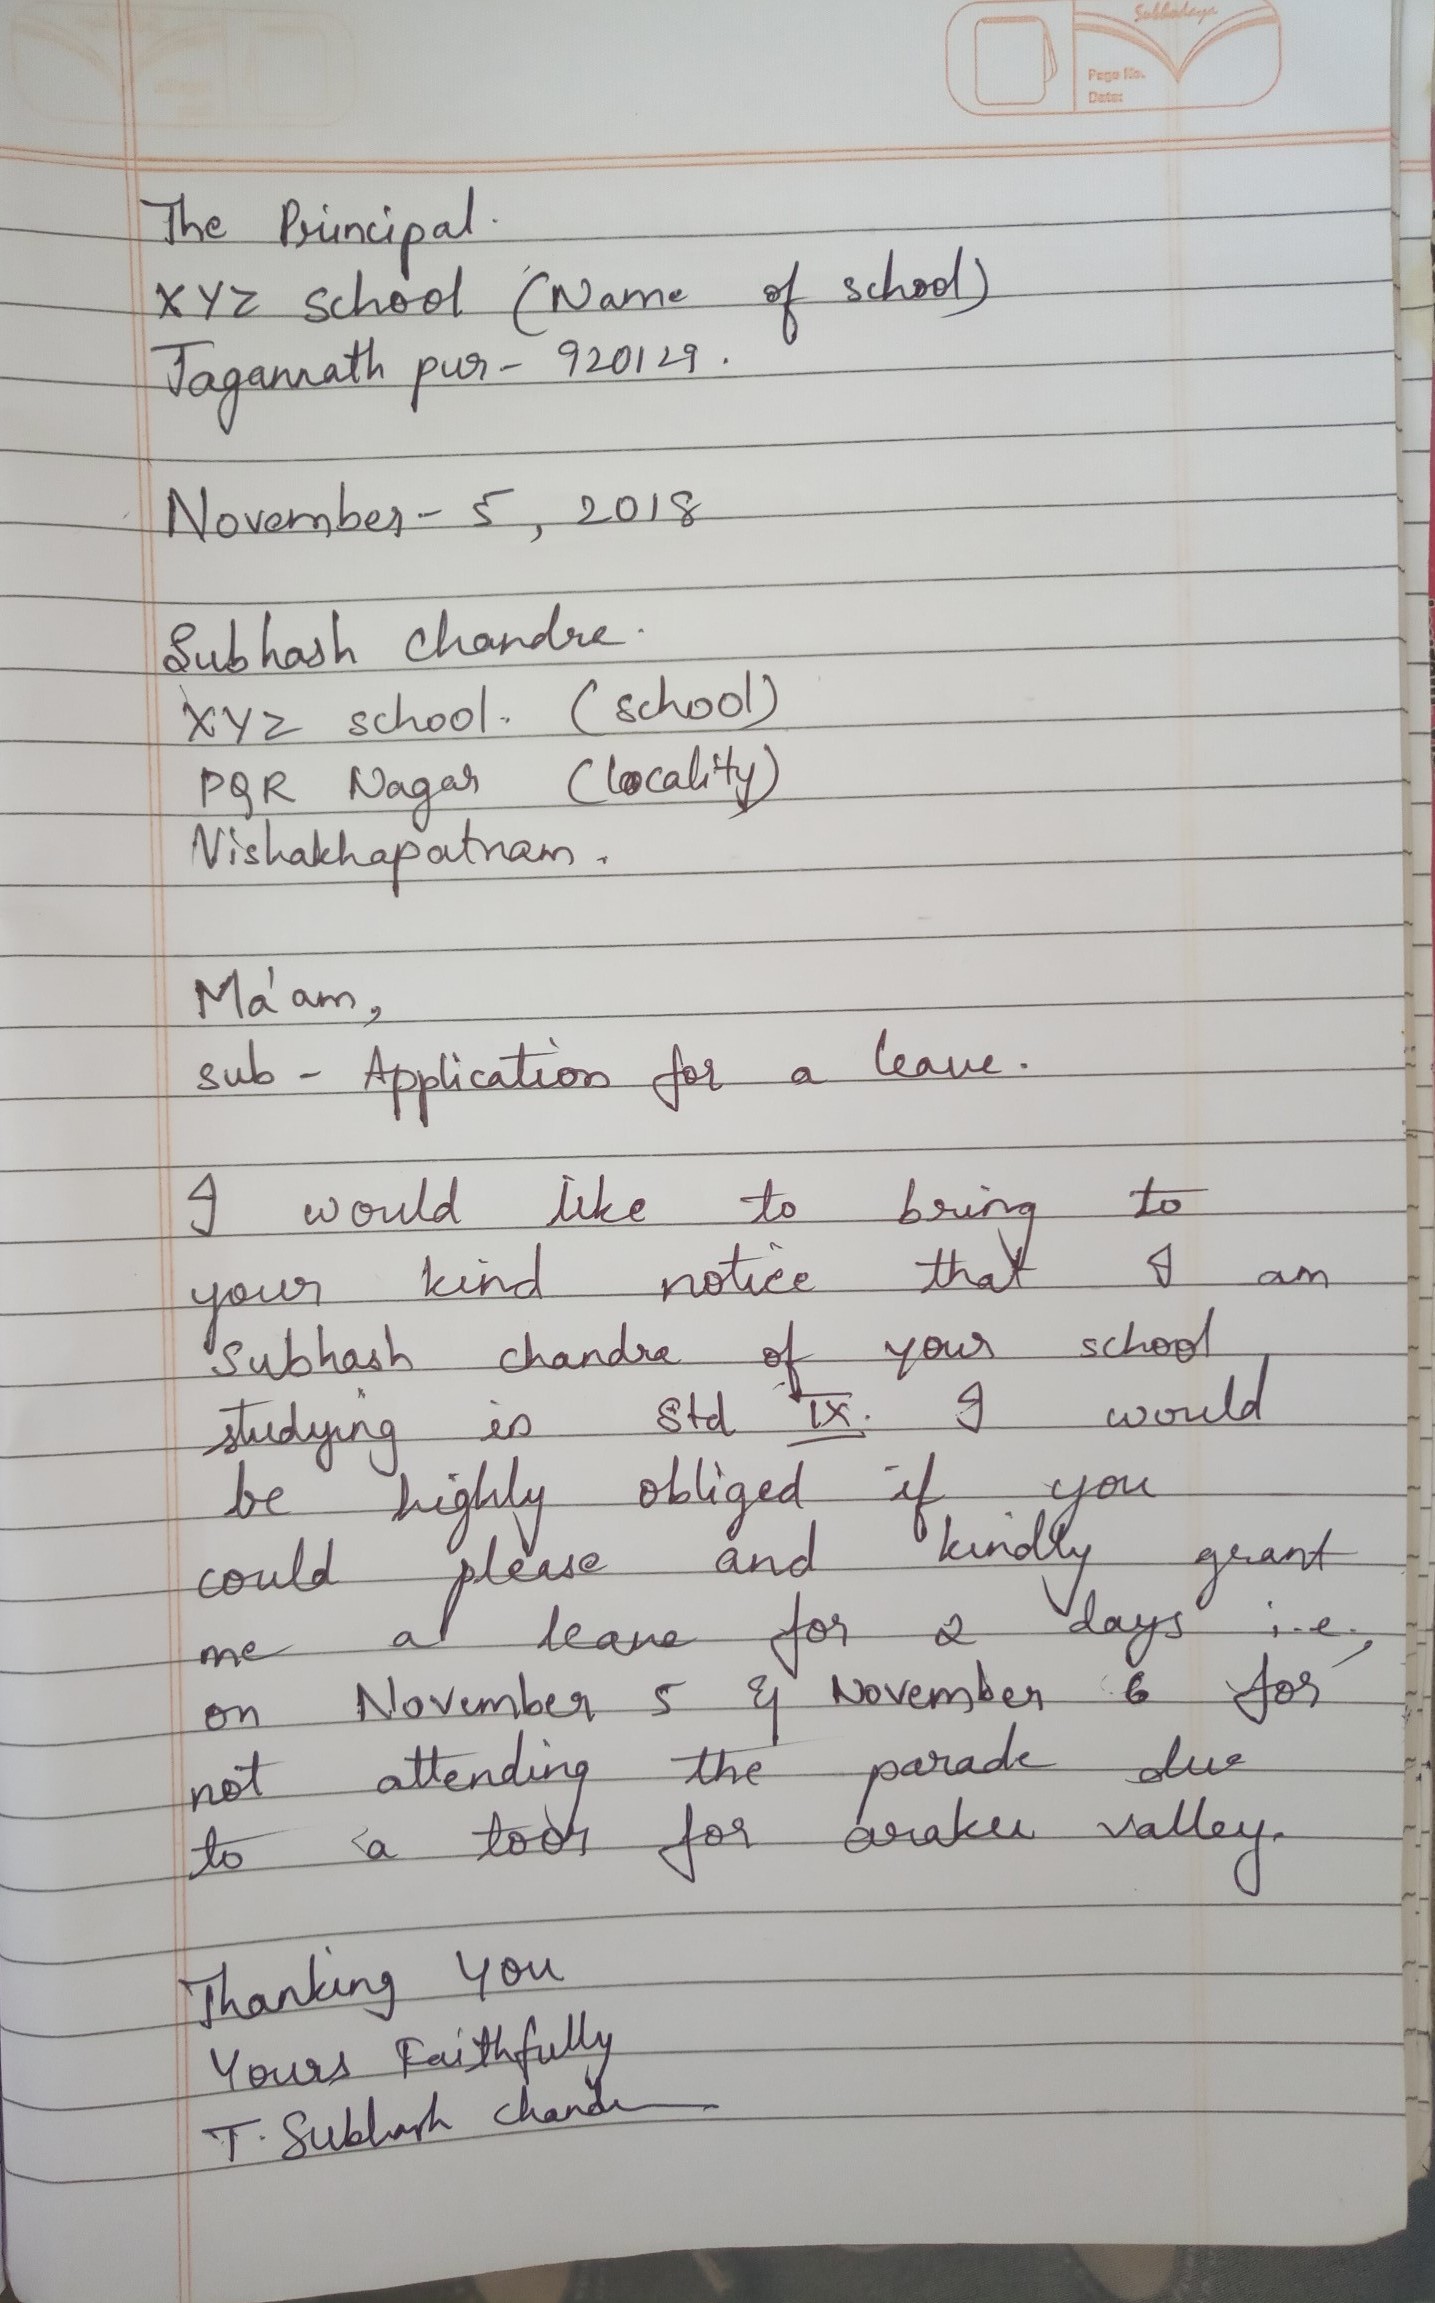 Subhodaya
Page No.
Date:
The Principal.
XYZ school (Name of school)
Jagannath pur - 920129.
November - 5, 2018
Subhash Chandra.
XYZ school. (school)
PQR Nagar (locality)
Vishakhapatnam.
Ma'am,
sub - Application for a leave.
I would like to bring to
your kind notice that I am
Subhash chandra of your school
studying in Std IX. I would
be highly obliged if you
could please and kindly grant
me a leave for 2 days i.e.,
on November 5 & November 6 for
not attending the parade due
to a toor for araku valley.
Thanking You
Yours Faithfully
T. Subhash Chandra